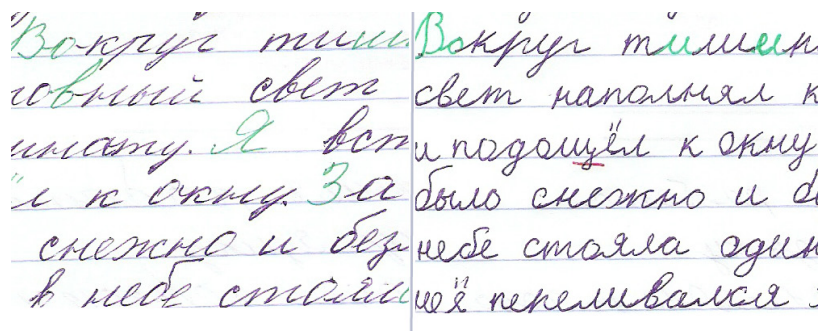 Вокруг тиши
ровный свет
мнату. Я вст
л к окну. За
снежно и без
в небе стояла
Вокруг тишин
свет наполнял к
и подощёл к окну
было снежно и б
небе стояла один
неё переливался